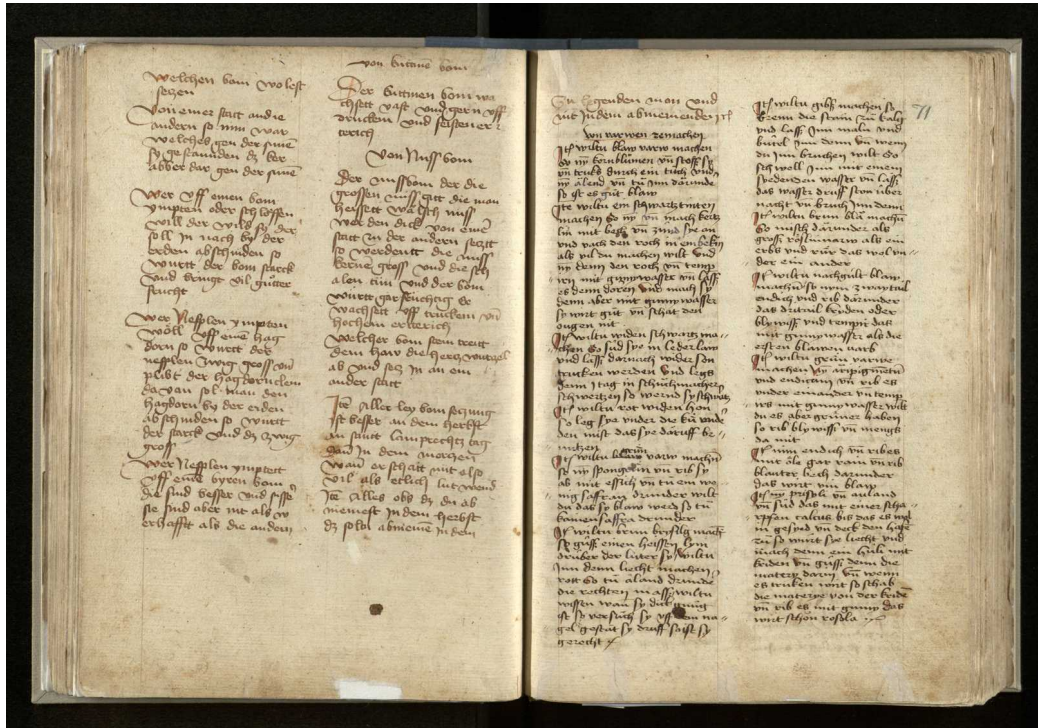 welchen bom wo lest
setzen
Von einer statt an die
andern so nim war
welches gen der sune
sy gestannden dz ker
aber dar gen der sune
Wer uff einen bom
ympten oder schlossen
will der wild sy der
soll in nach by der
erden abschniden so
wurtt der bom starck
vnd bringt vil gutter
frucht
Wer Nesplen ympten
wöll uff eine hag
dorn so wurtt der
nesplen zwig gross vn
plibt der hagdorn clein
da van sol man den
hagdorn by der erden
abschniden so wurtt
der starck vnd dz zwig
gross
Wer Nesplen ymptett
uff eine byren bom
die sind besser vnd süsse
sie sind aber nit als w
erhafft als die andern
von kuttane bom
Der kuttinen bom wa
chsett vast vnd gern uff
druckem vnd feistem er
terich
Von Nuss bom
Der nussbom der die
grossen nuss gitt die man
heissett wälsch nuss
werden dick von eine
statt zu der andern setzt
so werdentt die nuss
kerne gross vnd die sch
alen tün vnd der bom
wurtt gar fruchtig er
wachsett uff truckem vn
hochem ertterich
Welcher bom stein treitt
dem haw die hertz wurtzel
ab vnd setz in an ein
ander statt
Ite Aller ley bom setzung
ist besser an dem herbst
an sanct lamprechtz tag
dan in dem mertzen
wan er schatt nit also
vil als etlich lut wend
Ite Alles obs dz du ab
niemest in dem herbst
dz soltu abnieme in dem
Zu legenden mon vnd
nit in dem abniemenden
von varwen zemachen
It wiltu blaw varw machen
so ny kornblumen vn stoss sy
vn truks durch ein tuch vnd
ny alend vn tu im darunde
so ist es gut blaw
Ite wiltu ein schwartz tinten
machen so ny vn mach kertz
lin mit bech vn zind sye an
vnd vach den roch in em bekin
als vil du machen wilt vnd
ny denn den roch vn temp
irn mit gumywasser vn lass
es denn doren vnd mach sy
denn aber mit gumywasser
sy wirt gut vn schat den
ougen nit
It wiltu widen schwartz ma
chen so süd sye in lederlow
vnd lass darnach wider son
trucken werden vnd legs
denn 1 tag in schuchmacher
schwertzen so wernd sy schwartz
It wiltu rot widen hon
so leg sye vnder die ku vnde
den mist das sye daruff be
netzen
It wiltu grün varw machen
so ny spongrün vn rib sy
ab mit essich vn tu em we
nig saffran darunder wilt
du das sy blaw werd so tu
kainen saffra darunder
It wiltu brun brysilg mache
so güss einen heissen lym
druber der luter sy wiltu
inn denn liecht machen
rott so tu aland drunde
die rechten m ass wiltu
wissen wan sy dick gnug
ist so versuch sy uff dem na
gel gestat sy druff so ist sy
gerecht
71
It wiltu gibs machen so
brenn die stein zu kalch
vnd lass inn maln vnd
butel inn denn vn wenn
du inn bruchen wilt so
schwell inn mit einem
siedenden wasser vn lass
das wasser druff ston uber
nacht vn bruch inn denn
It wiltu brun bla machen
so misch darunder als
gross rosinnarw als ein
erbs vnd rur das wol vn
der ein ander
It wiltu nachgült blaw
machen so nym zwaytail
endich vnd rib darunder
das drittail kriden oder
blywiss vnd tempir das
mit gumywasser als die
ersten blawen varb
It wiltu grün varwe
machen ny aripigmetu
vnd endicum vn rib es
vnder einander vn temp
irs mit gumywasser wilt
du es aber grüner haben
so rib blywiss vn mengs
da mit
It nim endich vn rib es
mit öle gar rain vn rib
blauter lech darunder
das wirt vin blaw
It ny prisely vn auland
vn süd das mit einer scha
rpffen calcus bis das es wol
in gesyed vn deck den hafe
zu so wirt sye liecht vnd
mach denn ein hüli mit
kriden vn güss denn die
matery darin vn wenn
es truken wirt so schab
die materye von der kride
vn rib es mit gumy das
wirt schön rosola